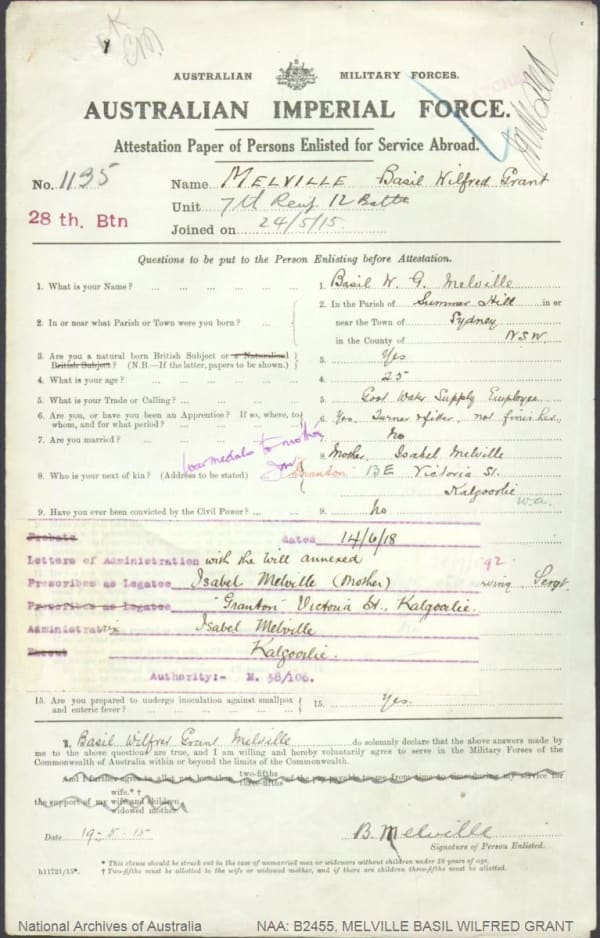 AUSTRALIAN MILITARY FORCES.
AUSTRALIAN IMPERIAL FORCE.
Attestation Paper of Persons Enlisted for Service Abroad.
No. 1135 Name MELVILLE Basil Wilfred Grant
28 th. Btn Unit 7th Reinf 12 Battn
Joined on 24/5/15
Questions to be put to the Person Enlisting before Attestation.
1. What is your Name? 1. Basil W. G. Melville
2. In or near what Parish or Town were you born? 2. In the Parish of Summer Hill in or
near the Town of Sydney
in the County of NSW
3. Are you a natural born British Subject or a Naturalised
British Subject? (N.B.—If the latter, papers to be shown.) 3. Yes
4. What is your age? 4. 25
5. What is your Trade or Calling? 5. Govt Water Supply Employee
6. Are you, or have you been an Apprentice? If so, where, to
whom, and for what period? 6. Yes. Turner & fitter, not finished
7. Are you married? 7. No
war medals to mother
8. Who is your next of kin? (Address to be stated) 8. Mother. Isabel Melville
Granton 13E Victoria St.
Kalgoorlie W.A.
9. Have you ever been convicted by the Civil Power? 9. No
Probate dated 14/6/18
Letters of Administration with the Will annexed
Prescribes as Legatee Isabel Melville (Mother) Sergt.
Prescribes as Legatee "Granton" Victoria St., Kalgoorlie.
Administratrix Isabel Melville
Kalgoorlie.
Authority:- M. 38/106.
15. Are you prepared to undergo inoculation against smallpox
and enteric fever? 15. Yes.
I, Basil Wilfred Grant Melville do solemnly declare that the above answers made by
me to the above questions are true, and I am willing and hereby voluntarily agree to serve in the Military Forces of the
Commonwealth of Australia within or beyond the limits of the Commonwealth.
And I further agree to allot not less than two-fifths three-fifths of the pay payable to me from time to time during my service for
wife.* †
the support of my wife and children.
widowed mother.
Date 19-8-15 B. Melville
Signature of Person Enlisted.
* This clause should be struck out in the case of unmarried men or widowers without children under 18 years of age.
b11721/15*. † Two-fifths must be allotted to the wife or widowed mother, and if there are children three-fifths must be allotted.
National Archives of Australia NAA: B2455, MELVILLE BASIL WILFRED GRANT